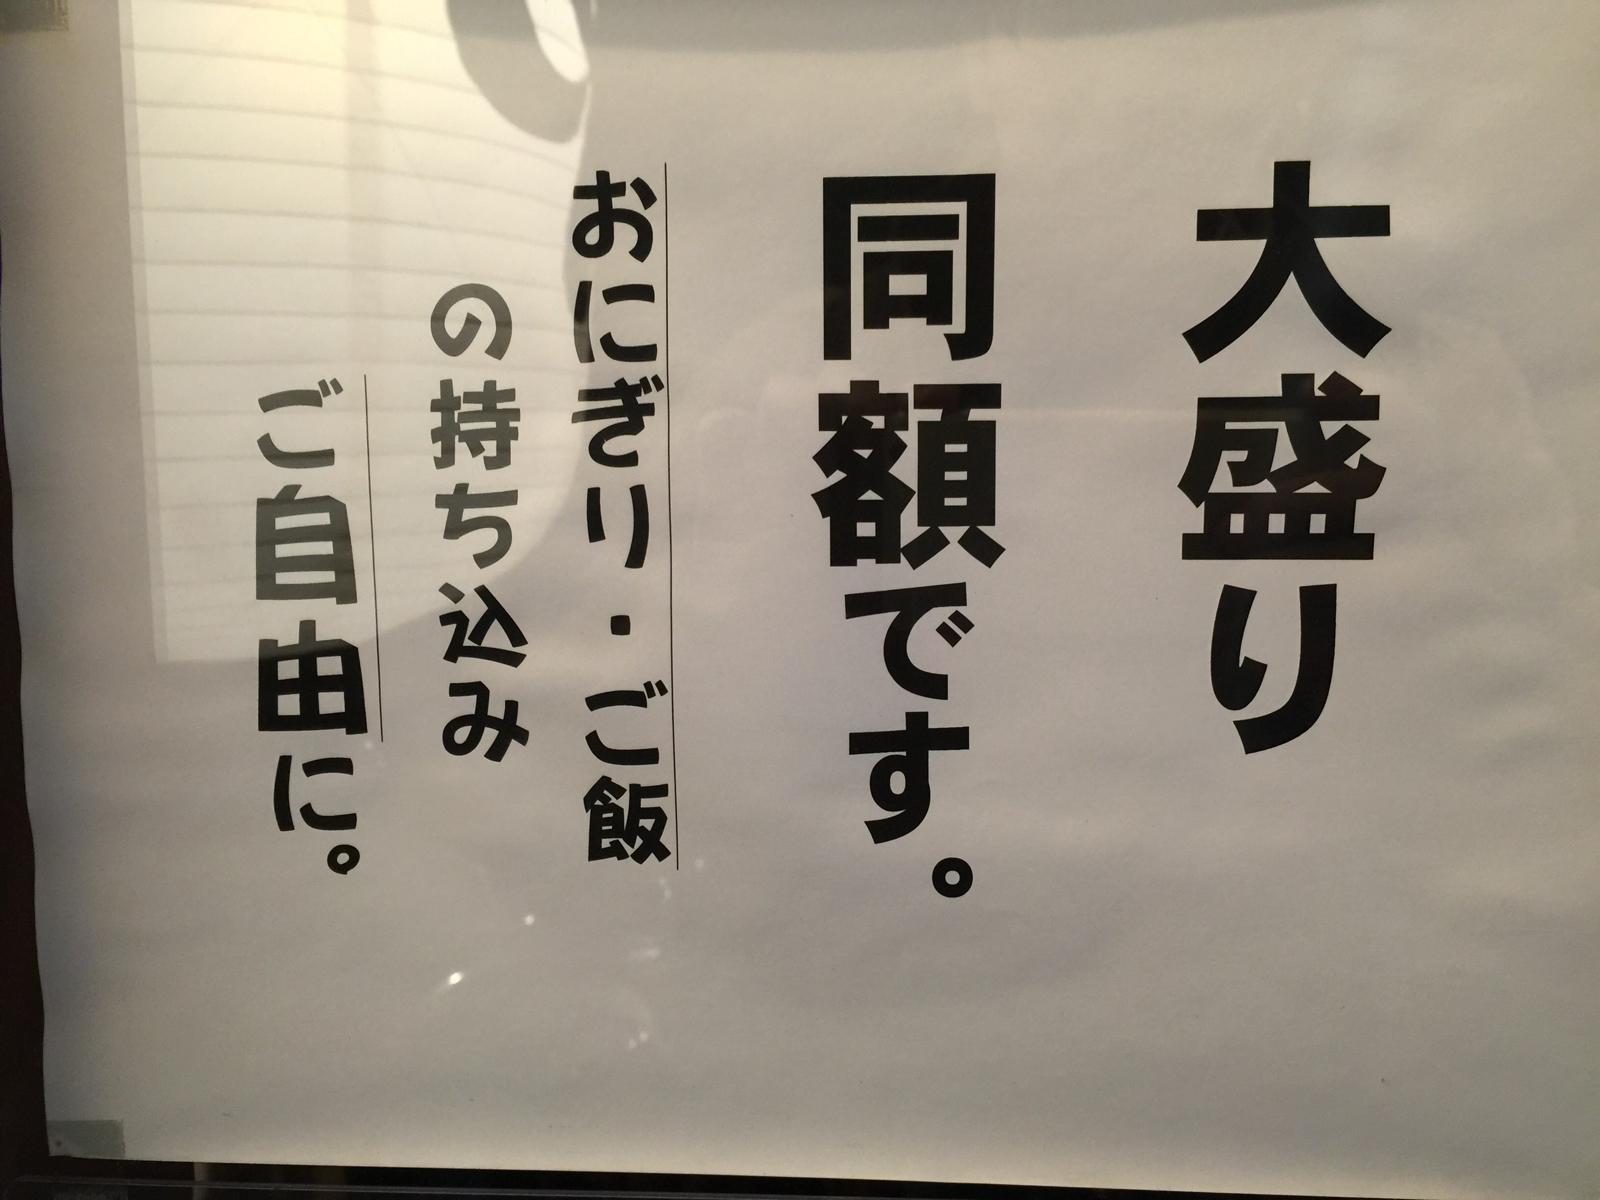 大盛り
同額です。
おにぎり・ご飯
の持ち込み
ご自由に。